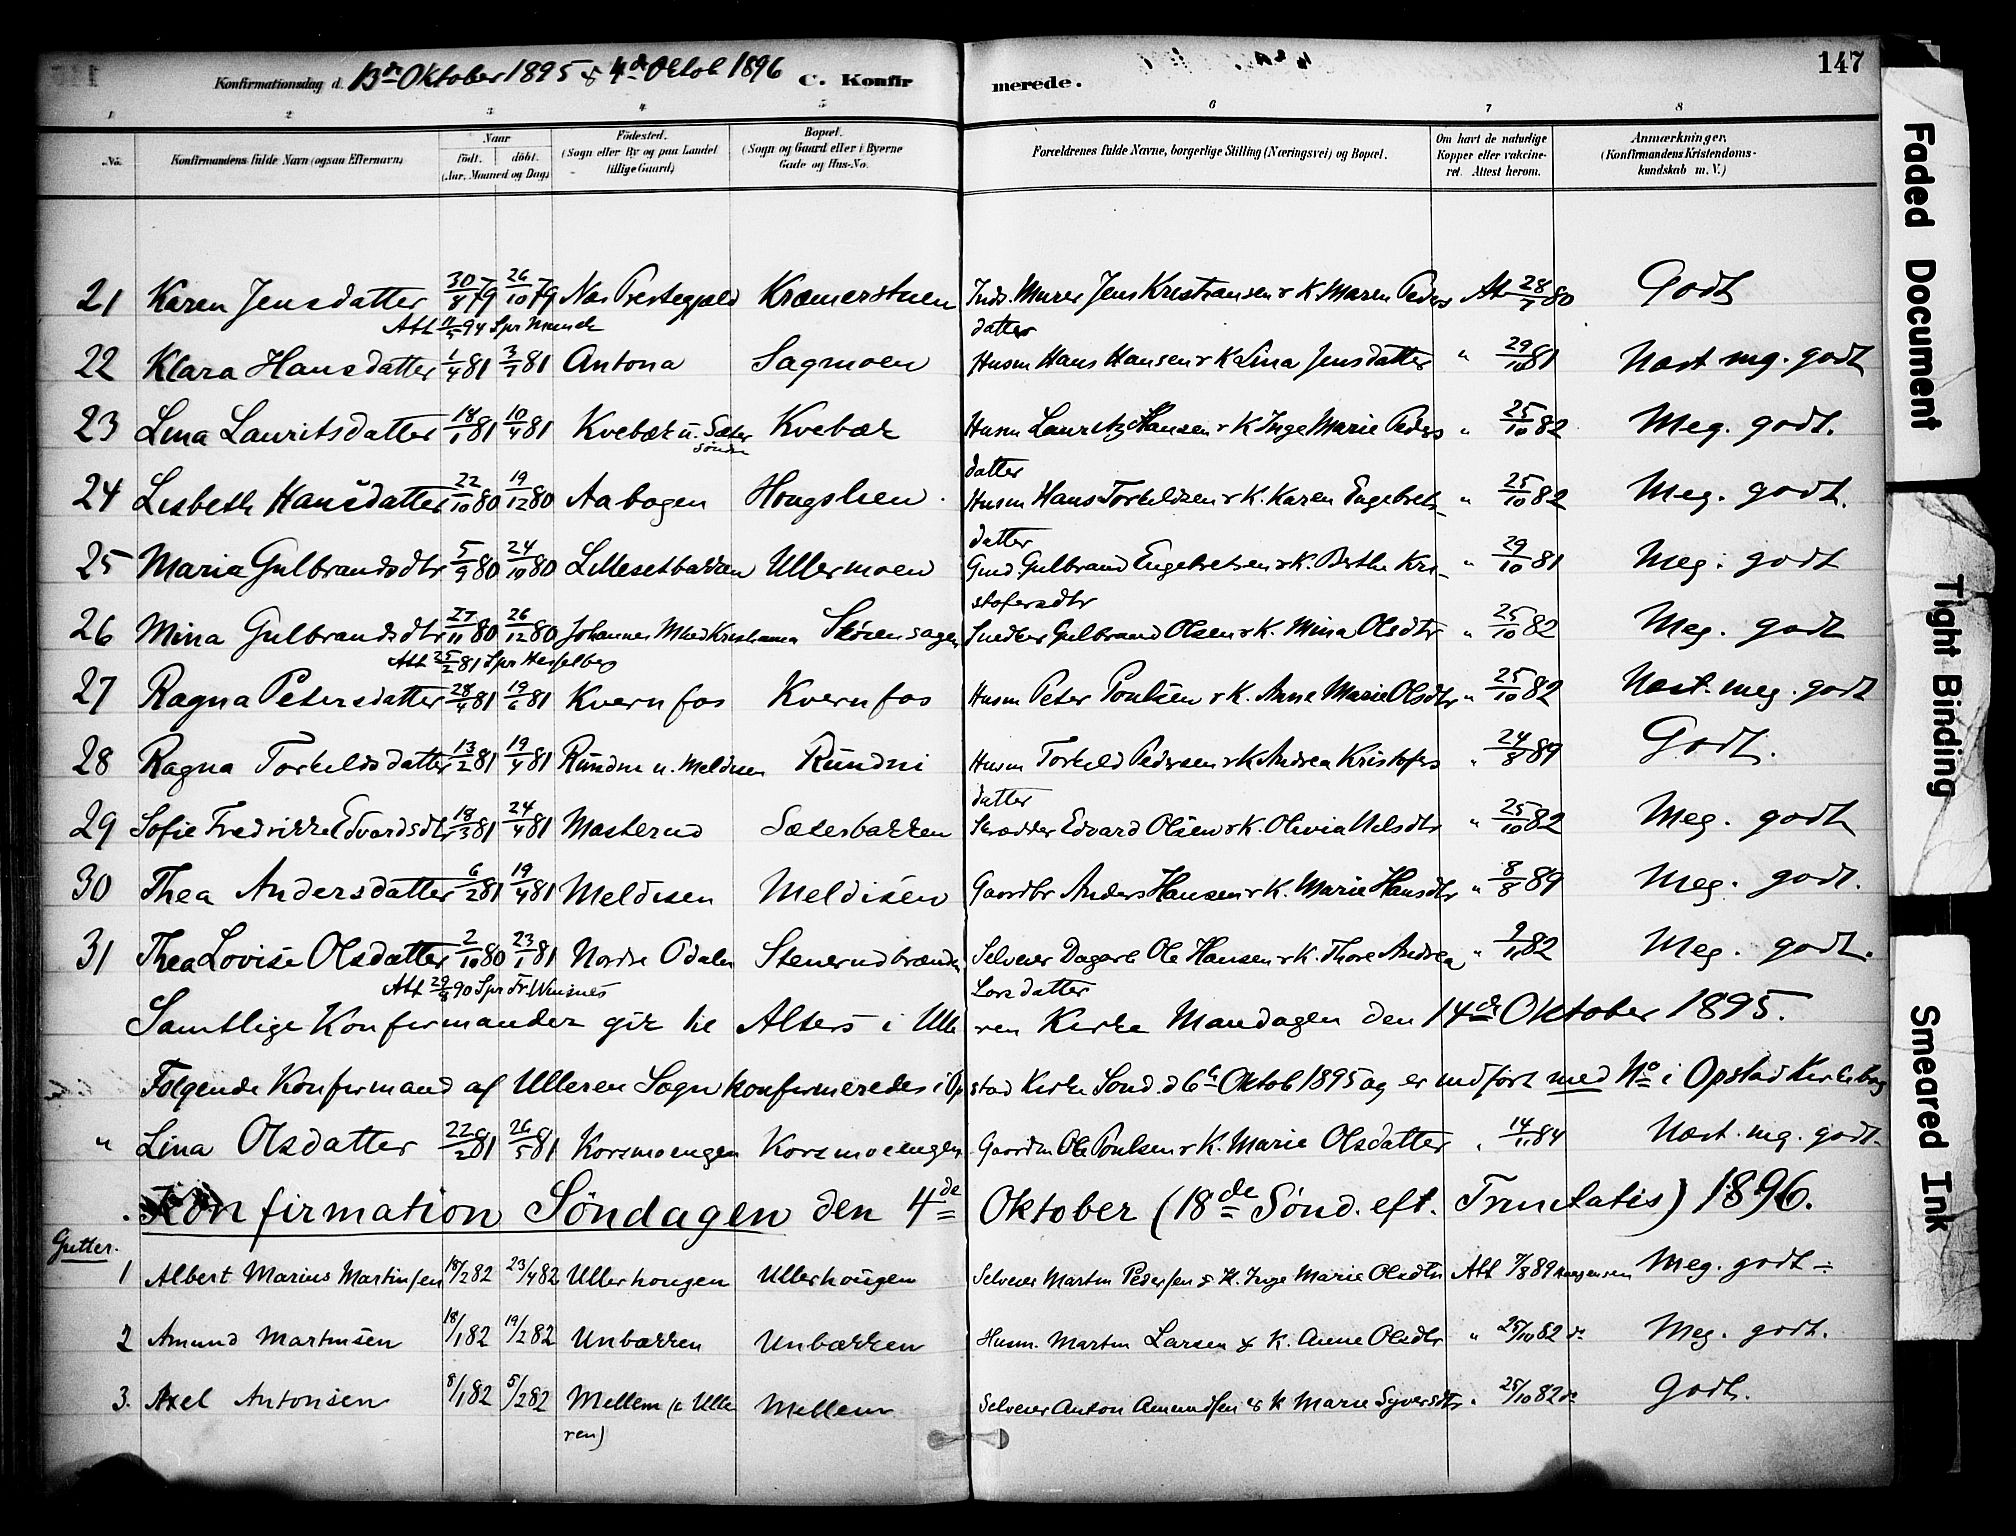 Konfirmationsdag d. 13de Oktober 1895 & 4de Oktob 1896 C. Konfirmerede. 147
1 2 3 4 5 6 7 8
No. Konfirmandens fulde Navn (ogsaa Efternavn) Naar födt. döbt. (Aar, Maaned og Dag) Födested. (Sogn eller By og paa Landet tillige Gaard) Bopæl. (Sogn og Gaard eller i Byerne Gade og Hus-No. Forældrenes fulde Navne, borgerlige Stilling (Næringsvei) og Bopæl. Om havt de naturlige Kopper eller vakcineret. Attest herom. Anmærkninger. (Konfirmandens Kristendomskundskab m. V.)
21 Karen Jensdatter 30/8 79 26/10 79 Nas Prestegjæld Kræmerstuen Inds. Murer Jens Kristiansen & K. Maren Peders At 28/7 80 Godt
Att 11/5 94 Spr Munch datter
22 Klara Hansdatter 1/4 81 3/7 81 Antona Sagmoen Husm Hans Hansen & K Lina Jensdatter " 29/10 81 Næst mg. godt
23 Lina Lauritsdatter 18/1 81 10/4 81 Kvebæk u. Sæter Kvebæk Husm Lauritz Hansen & K Inge Marie Peders " 25/10 82 Meg. godt.
Søndre datter
24 Lisbeth Hansdatter 22/10 80 19/12 80 Aabogen Hougslien. Husm Hans Torkildsen & K. Karen Engebrets- " 25/10 82 Meg. godt.
datter
25 Maria Gulbrandsdtr 5/9 80 24/10 80 Lillesetbakken Ullermoen Gmd. Gulbrand Engebretsen & K. Berthe Kri- " 29/10 81 Meg. godt
stofersdtr
26 Mina Gulbrandsdtr 27/11 80 26/12 80 Johannes Mked Kristiania Skørensagen Snedker Gulbrand Olsen & K. Mina Olsdtr " 25/10 82 Meg. godt
Att 25/2 81 Spr Hesselberg
27 Ragna Petersdatter 28/4 81 19/6 81 Kvernfos Kvernfos Husm Peter Poulsen & K. Anne Marie Olsdtr " 25/10 82 Næst. meg. godt
28 Ragna Torkeldsdatter 13/2 81 19/4 81 Rundni u. Meldisen Rundni Husm Torkeld Pedersen & K Andrea Kristofers " 24/8 89 Godt.
datter
29 Sofie Fredrikke Edvardsdtr 18/3 81 24/4 81 Masterud Sæterbakken Skrædder Edvard Olsen & K. Olivia Nilsdtr " 25/10 82 Meg. godt
30 Thea Andersdatter 6/2 81 19/4 81 Meldisen Meldisen Gaardbr Anders Hansen & K. Marie Hansdtr " 8/8 89 Meg. godt.
31 Thea Lovise Olsdatter 2/10 80 23/1 81 Nordre Odalen Stenerudbrænden Selveier Dagarb Ole Hansen & K. Thore Andrea " 9/11 82 Meg. godt.
Att 29/8 90 Spr Fr. Winsnes Larsdatter
Samtlige Konfirmander gik til Alters i Ulleren Kirke Mandagen den 14de Oktober 1895.
Følgende Konfirmand af Ulleren Sogn konfirmeredes i Opstad Kirke Sønd. d 6te Oktob 1895 og er indført med No i Opstad Kirkebog
" Lina Olsdatter 22/2 81 26/5 81 Korsmoengen Korsmoengen Gaardm Ole Poulsen & K. Marie Olsdatter " 14/11 84 Næst. mg. godt.
Konfirmation Söndagen den 4de Oktober (18de Sønd. eft. Trinitatis) 1896.
Gutter.
1 Albert Marius Martinsen 18/2 82 23/4 82 Ullerhougen Ullerhougen Selveier Martin Pedersen & K. Inge Marie Olsdtr Att 7/8 89 Meg. godt ÷
2 Amund Martinsen 18/1 82 19/2 82 Unbakken Unbakken Husm. Martin Larsen & K. Anne Olsdtr " 25/10 82 do Meg. godt.
3. Axel Antonsen 8/1 82 5/2 82 Mellem (i Ulle Mellem Selveier Anton Amundsen & K Marie Syversdtr " 25/10 82 do Godt.
ren)
Faded Document
Tight Binding
Smeared Ink